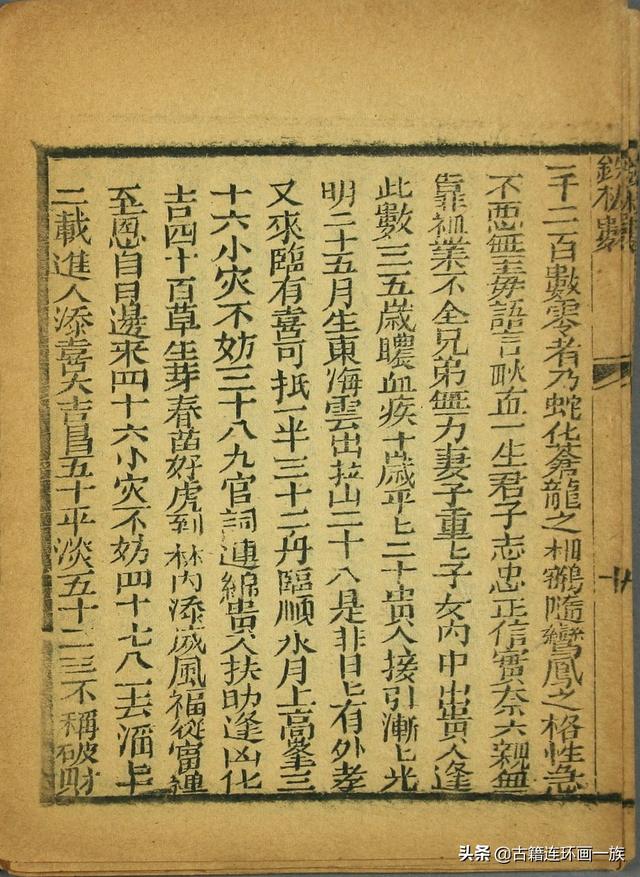 鉄板數
十八
一千二百數零者乃蛇化蒼龍之相鶴隨鸞鳳之格性急
不惡無至毋語言耿血一生君子志忠正信實奈六親無
靠祖業不全兄弟無力妻子重七子女內中出貴人逢
此數三五歲膿血疾十歲平上二十貴人接引漸上光
明二十五月生東海雲出拉山二十八是非日上有外孝
又來臨有喜可抵一半三十二舟臨順水月上高峯三
十六小灾不妨三十八九官詞連綿貴人扶助逢凶化
吉四十百草生芽春苗好虎到林內添威風福從富連
至恩自日邊來四十六小灾不妨四十七八一去滔上半
二載進人添喜大吉昌五十平淡五十二三不稱破財
头条 @古籍连环画一族